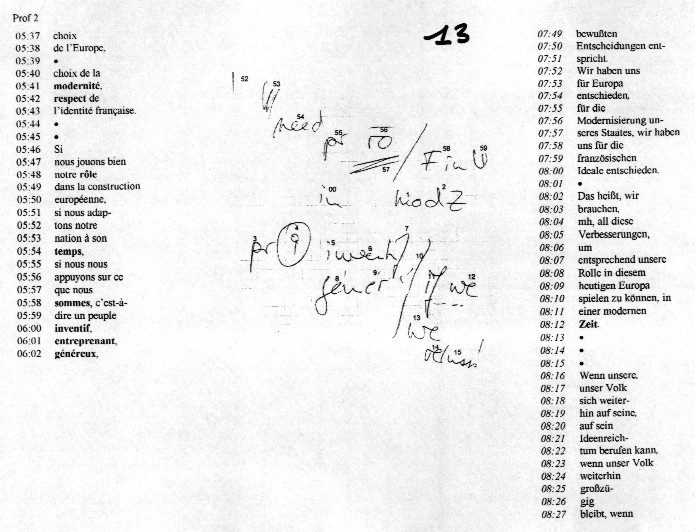 Prof 2
13
05:37 choix
05:38 de l'Europe,
05:39 •
05:40 choix de la
05:41 modernité,
05:42 respect de
05:43 l'identité française.
05:44 •
05:45 •
05:46 Si
05:47 nous jouons bien
05:48 notre rôle
05:49 dans la construction
05:50 européenne,
05:51 si nous adap-
05:52 tons notre
05:53 nation à son
05:54 temps,
05:55 si nous nous
05:56 appuyons sur ce
05:57 que nous
05:58 sommes, c'est-à-
05:59 dire un peuple
06:00 inventif,
06:01 entreprenant,
06:02 généreux,
52
53
54
need
55 56
pr ro
57
58 59
F in U
00 2
in modZ
3 4 5 6 7
pr 9 invent
8 9 10 11 12
génér if we
13
we
14 15
07:49 bewußten
07:50 Entscheidungen ent-
07:51 spricht.
07:52 Wir haben uns
07:53 für Europa
07:54 entschieden,
07:55 für die
07:56 Modernisierung un-
07:57 seres Staates, wir haben
07:58 uns für die
07:59 französischen
08:00 Ideale entschieden.
08:01 •
08:02 Das heißt, wir
08:03 brauchen,
08:04 mh, all diese
08:05 Verbesserungen,
08:06 um
08:07 entsprechend unsere
08:08 Rolle in diesem
08:09 heutigen Europa
08:10 spielen zu können, in
08:11 einer modernen
08:12 Zeit.
08:13 •
08:14 •
08:15 •
08:16 Wenn unsere,
08:17 unser Volk
08:18 sich weiter-
08:19 hin auf seine,
08:20 auf sein
08:21 Ideenreich-
08:22 tum berufen kann,
08:23 wenn unser Volk
08:24 weiterhin
08:25 großzü-
08:26 gig
08:27 bleibt, wenn